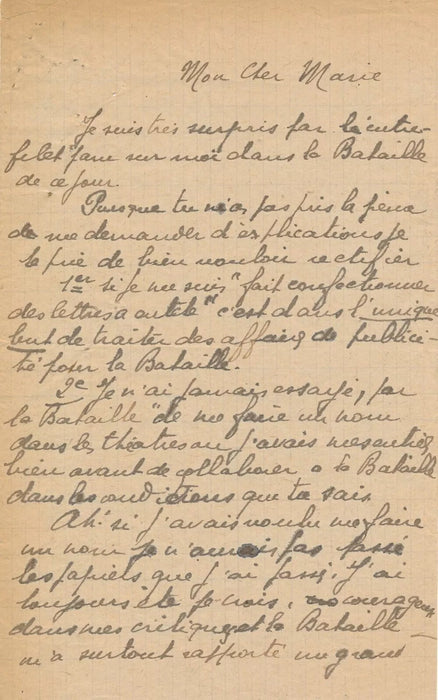 Mon Cher Marie
Je suis très surpris par l'entre-
filet paru sur moi dans la Bataille
de ce jour.
Puisque tu n'as pas pris la peine
de me demander d'explications je
te prie de bien vouloir rectifier
1er si je me suis "fait confectionner
des lettres à entête" c'est dans l'unique
but de traiter des affaires de publici-
té pour la Bataille.
2e Je n'ai jamais essayé, par
la Bataille "de me faire un nom
dans les théatres où j'avais mes entrées
bien avant de collaborer à la Bataille
dans les conditions que tu sais.
Ah! si j'avais voulu me faire
un nom je n'aurais pas passé
les papiers que j'ai passé. J'ai
toujours été je crois, courageux
dans mes critiques et la Bataille
m'a surtout rapporté un grand